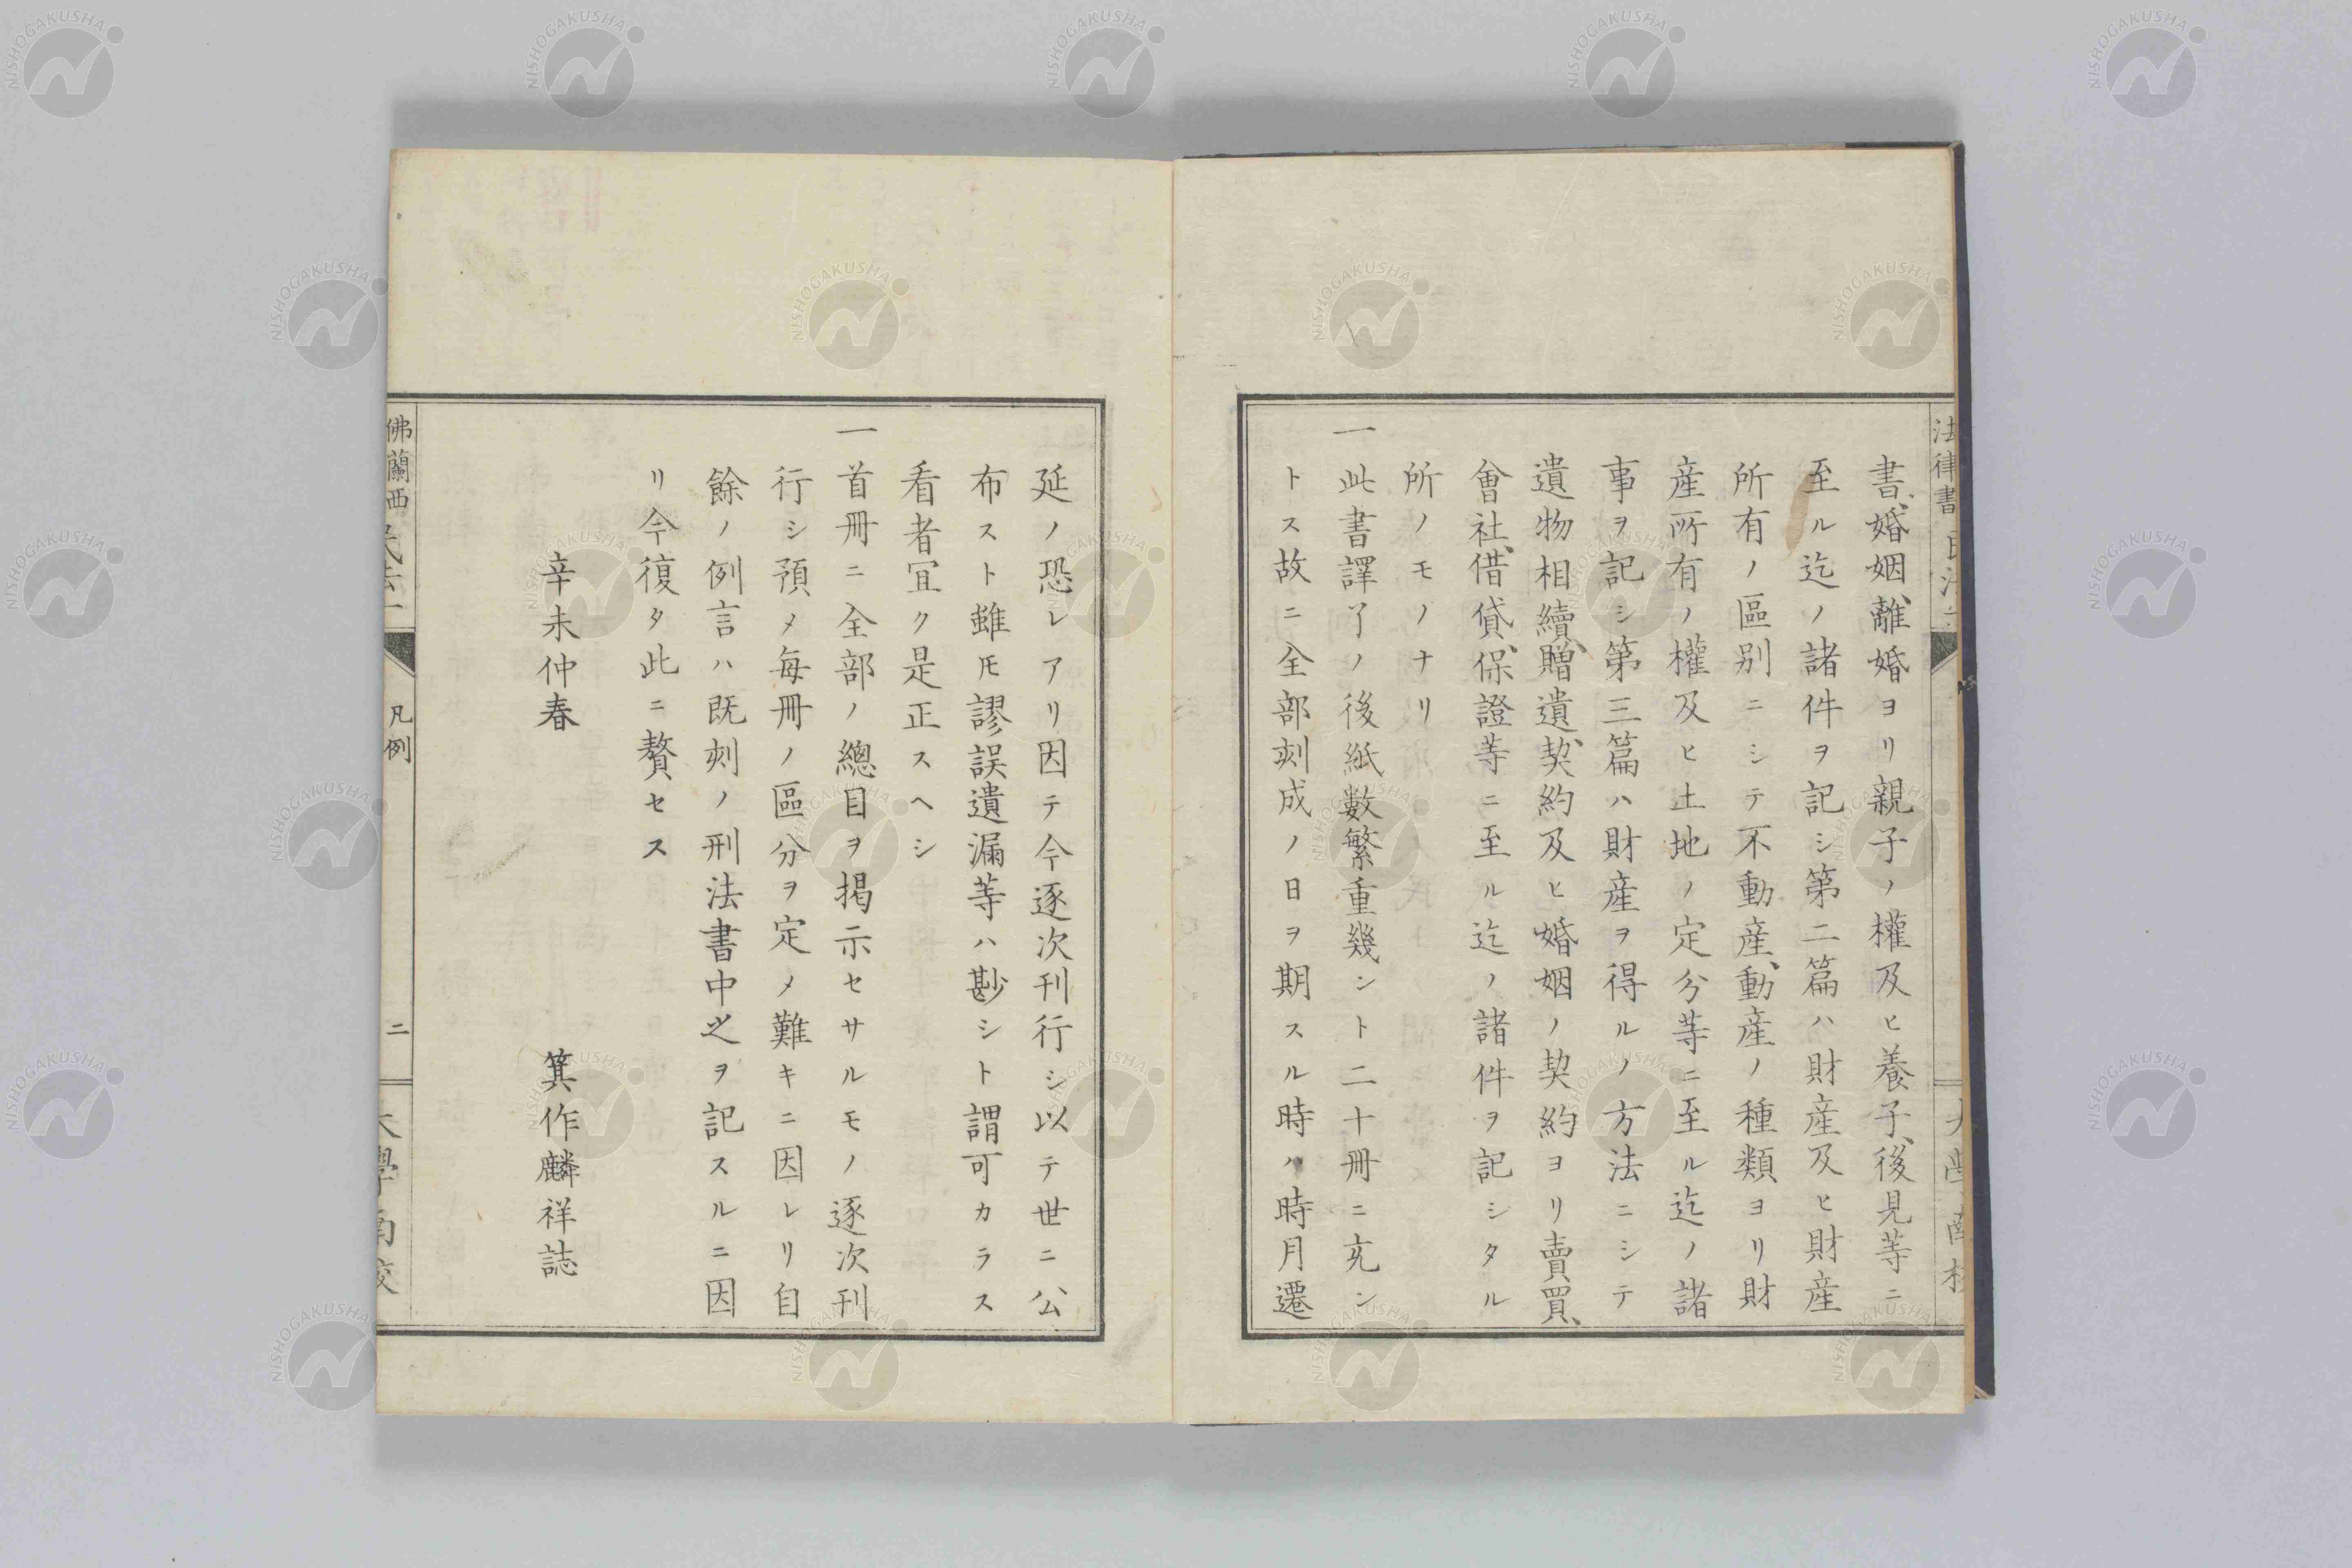 書、婚姻、離婚ヨリ親子ノ權及ヒ養子、後見等ニ
至ル迄ノ諸件ヲ記シ第二篇ハ財産及ヒ財産
所有ノ區別ニシテ不動産、動産ノ種類ヨリ財
産所有ノ權及ヒ土地ノ定分等ニ至ル迄ノ諸
事ヲ記シ第三篇ハ財産ヲ得ルノ方法ニシテ
遺物相續、贈遺、契約及ヒ婚姻ノ契約ヨリ賣買、
會社、借貸、保證等ニ至ル迄ノ諸件ヲ記シタル
所ノモノナリ
一此書譯了ノ後紙數繁重幾ント二十冊ニ充ン
トス故ニ全部刻成ノ日ヲ期スル時ハ時月遷
延ノ恐レアリ因テ今逐次刊行シ以テ世ニ公
布スト雖𪜈謬誤遺漏等ハ尠シト謂可カラス
看者冝ク是正スヘシ
一首冊ニ全部ノ總目ヲ掲示セサルモノ逐次刊
行シ預メ毎冊ノ區分ヲ定メ難キニ因レリ自
餘ノ例言ハ既刻ノ刑法書中之ヲ記スルニ因
リ今復タ此ニ贅セス
辛未仲春 箕作麟祥誌
佛蘭西 凡例 二
NISHOGAKUSHA